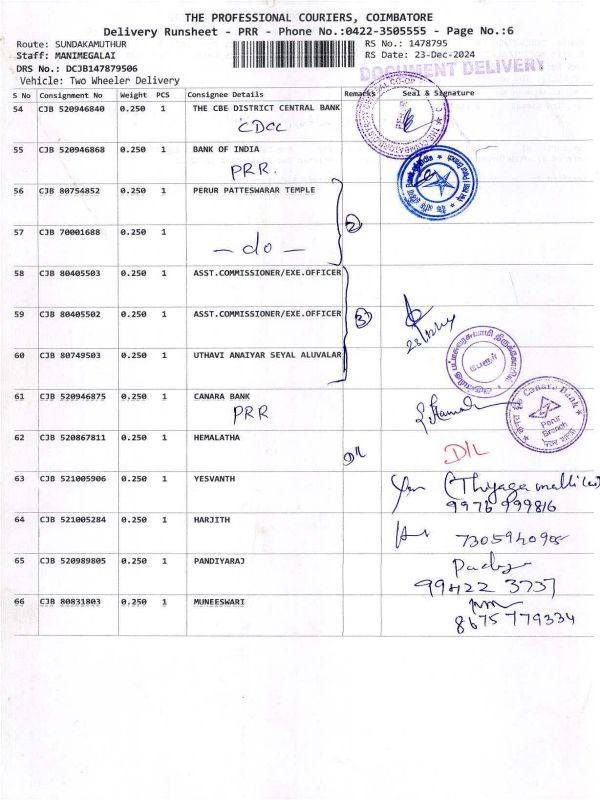 THE PROFESSIONAL COURIERS, COIMBATORE
Delivery Runsheet - PRR - Phone No.:0422-3505555 - Page No.:6
Route: SUNDAKAMUTHUR
RS No.: 1478795
Staff: MANIMEGALAI
RS Date: 23-Dec-2024
DRS No.: DCJB147879506
DOCUMENT DELIVERY
Vehicle: Two Wheeler Delivery
S No Consignment No Weight PCS Consignee Details Remarks Seal & Signature
54 CJB 520946840 0.250 1 THE CBE DISTRICT CENTRAL BANK
CDCC
55 CJB 520946868 0.250 1 BANK OF INDIA
PRR.
56 CJB 80754852 0.250 1 PERUR PATTESWARAR TEMPLE
2
57 CJB 70001688 0.250 1
- do -
58 CJB 80405503 0.250 1 ASST.COMMISSIONER/EXE.OFFICER
59 CJB 80405502 0.250 1 ASST.COMMISSIONER/EXE.OFFICER
3
60 CJB 80749503 0.250 1 UTHAVI ANAIYAR SEYAL ALUVALAR
பேரூர்
61 CJB 520946875 0.250 1 CANARA BANK
PRR
Canara Bank
Perur
Branch
62 CJB 520867811 0.250 1 HEMALATHA
D/L D/L
63 CJB 521005906 0.250 1 YESVANTH
9976 999816
64 CJB 521005284 0.250 1 HARJITH
7305940905
65 CJB 520989805 0.250 1 PANDIYARAJ
99422 3737
66 CJB 80831803 0.250 1 MUNEESWARI
8675 779334